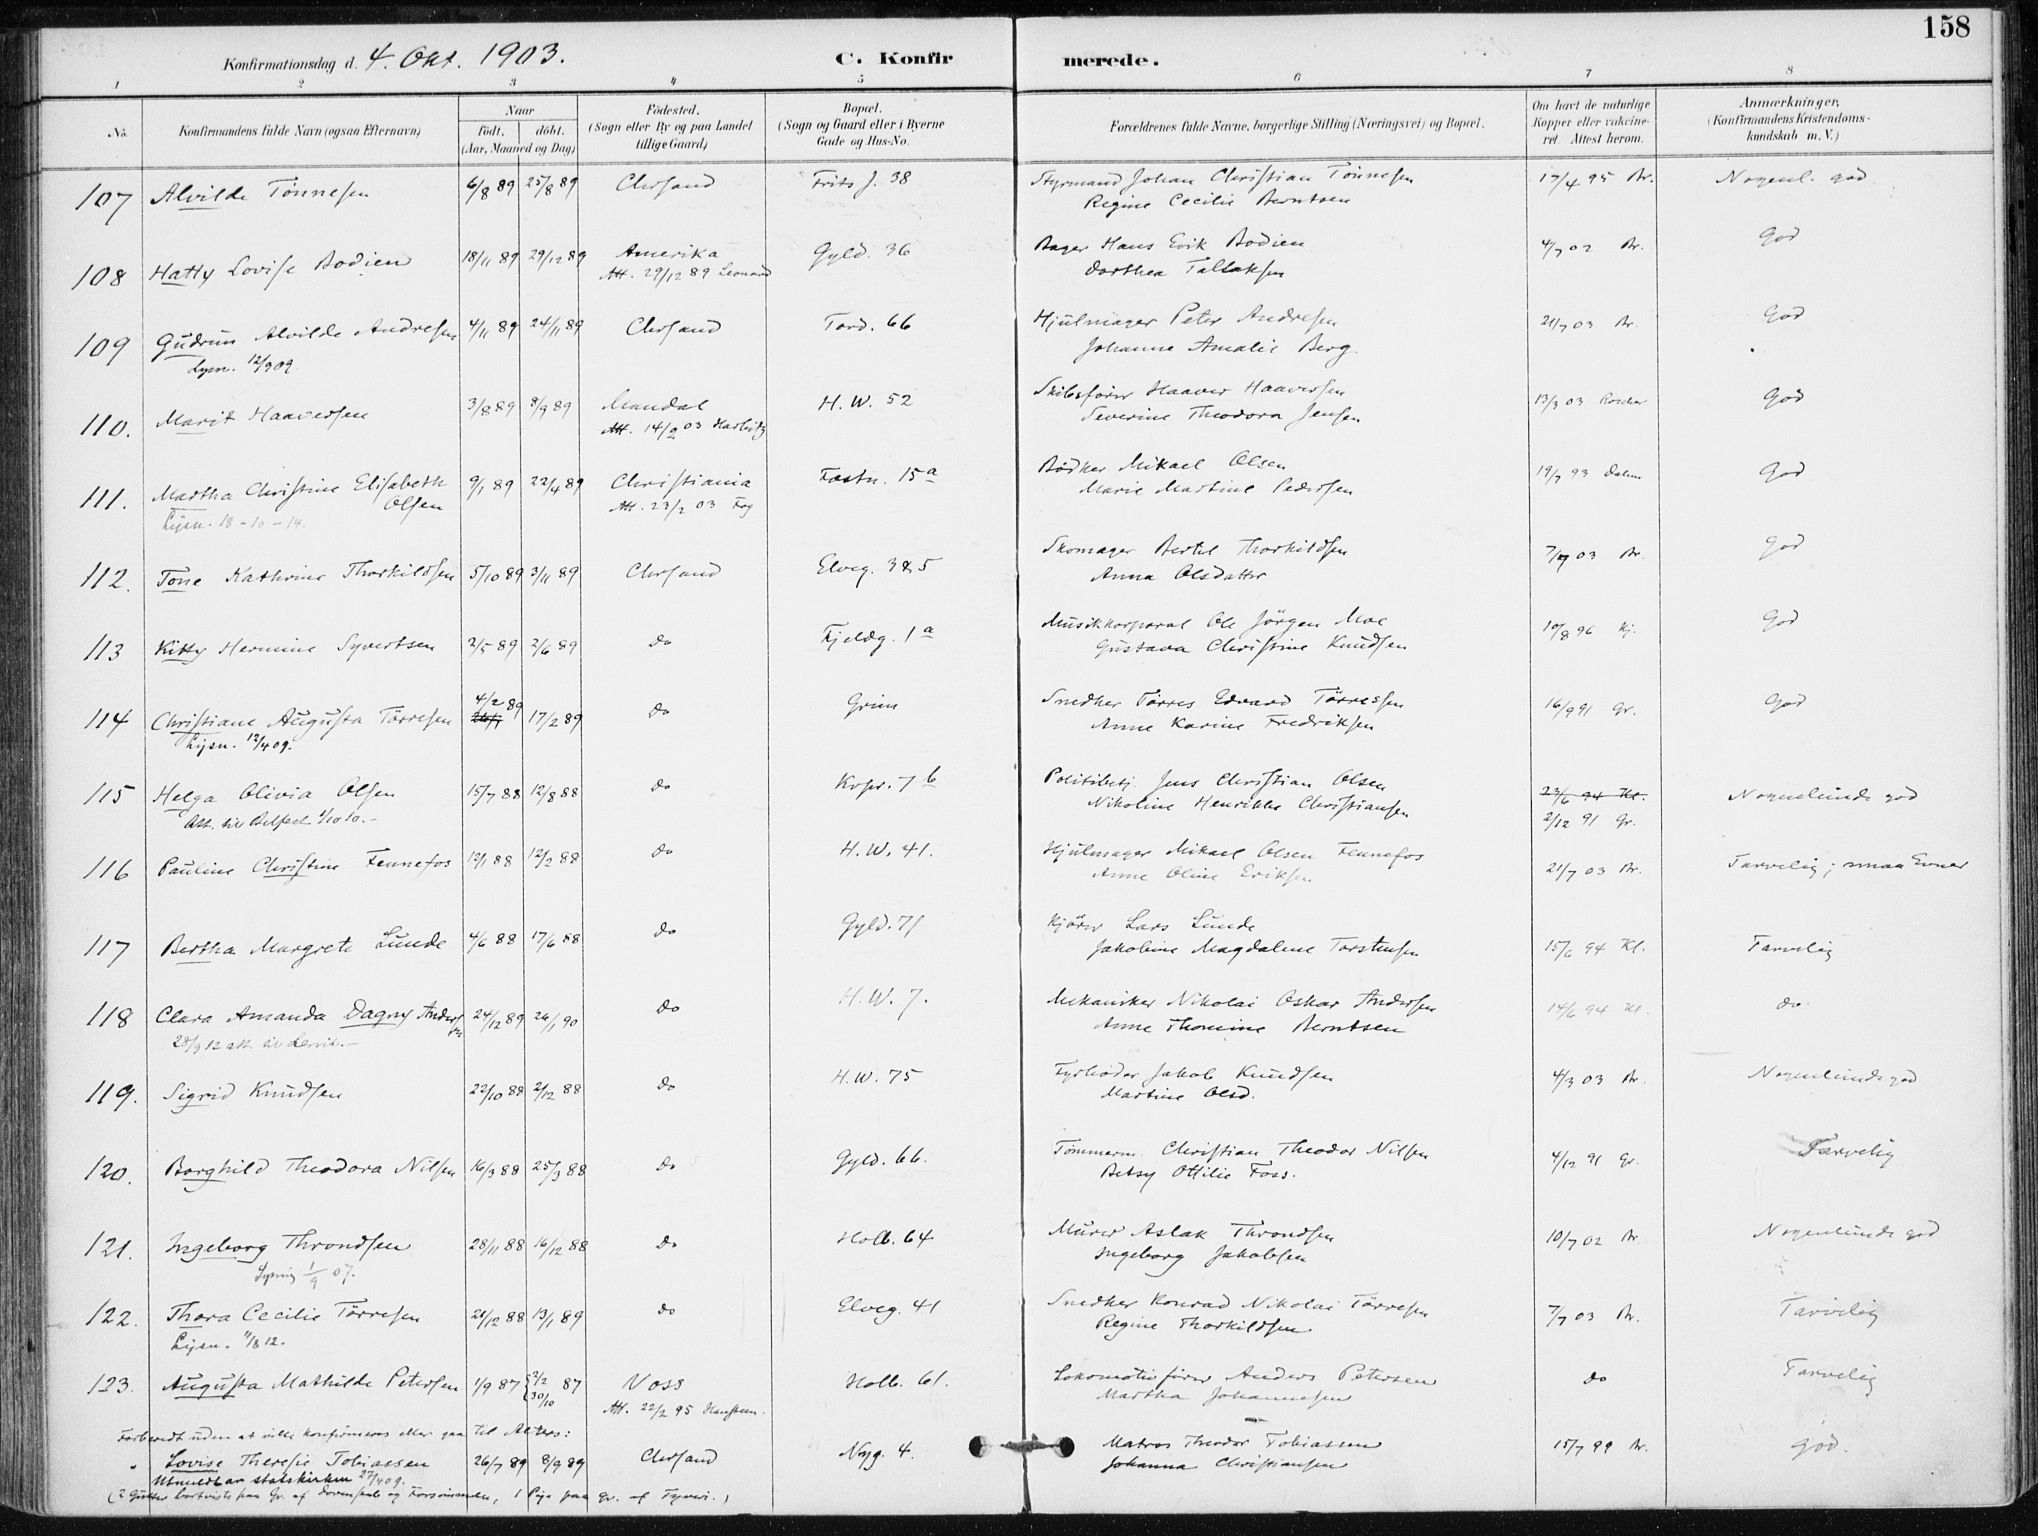 158
Konfirmationsdag d. 4. Okt. 1903. C. Konfirmerede.
1 2 3 4 5 6 7 8
No. Konfirmandens fulde Navn (ogsaa Efternavn) Naar födt. döbt. (Aar, Maaned og Dag) Födested. (Sogn eller By og paa Landet tillige Gaard) Bopæl. (Sogn og Gaard eller i Byerne Gade og Hus-No. Forældrenes fulde Navne, borgerlige Stilling (Næringsvei) og Bopæl. Om havt de naturlige Kopper eller vaccineret Attest herom. Anmærkninger, (Konfirmandens Kristendomskundskab m. V.)
107 Alvilde Tönnesen 6/8 89 25/8 89 Chrsand Frits J. 38 Styrmand Johan Christian Tönnesen 17/4 95 Br. Nogenl. god
Regine Cecilie Berntsen
108 Hatty Lovise Bodien 18/11 89 29/12 89 Amerika Gyld. 36 Bager Hans Erik Bodien 4/7 02 Br. God
Att. 29/12 89 Leonard Dorthea Tallaksen
109 Gudrun Alvilde Andresen 4/11 89 24/11 89 Chrsand Tord. 66 Hjulmager Peter Andresen 21/7 03 Br. God
Lysn. 12/9 09. Johanne Amalie Berg
110. Marit Haaversen 3/8 89 8/9 89 Mandal H. W. 52 Skibsförer Haaver Haaversen 13/3 03 God
Att. 14/2 03 Severine Theodora Jensen
111. Martha Christine Elisabeth Olsen 9/1 89 22/4 89 Christiania Fæstn. 15a Bödker Mikael Olsen 19/7 93 God
Lysn. 18-10-14. Att. 23/2 03 Marie Martine Pedersen
112. Tone Kathrine Thorkildsen 5/10 89 3/11 89 Chrsand Elveg. 38,5 Skomager Bertel Thorkildsen 7/7 03 Br. God
Anna Olsdatter
113 Kitty Hermine Syvertsen 2/5 89 2/6 89 do Fjeldg. 1a Musikkorporal Ole Jörgen Moe 10/8 96 Kj. God
Gustava Christine Knudsen
114 Christiane Augusta Törresen 4/2 89 17/2 89 do Grim Snedker Törres Edvard Törressen 16/9 91 Gr. God
Lysn. 12/4 09. Anne Karine Fredriksen
115 Helga Olivia Olsen 15/7 88 12/8 88 do Krpr. 7b Politibetj. Jens Christian Olsen 23/6 94 Kl. Nogenlunde god
Att. til Belfast 1/10 10.- Nikoline Henrikke Christiansen 2/12 91 Gr.
116 Pauline Christine Fennefos 12/1 88 12/2 88 do H. W. 41. Hjulmager Mikael Olsen Fennefos 21/7 03 Br. Tarvelig; smaa Evner
Anne Oline Eriksen
117 Bertha Margrete Lunde 4/6 88 17/6 88 do Gyld. 71 Kjörer Lars Lunde 15/6 94 Kl. Tarvelig
Jakobine Magdalene Torstensen
118 Clara Amanda Dagny Andersen 24/12 89 26/1 90 do H. W. 7. Mekaniker Nikolai Oskar Andersen 14/6 94 Kl. do
28/9 12 att. til Lervik.- Anne Thomine Berntsen
119. Sigrid Knudsen 22/10 88 2/12 88 do H. W. 75 Fyrböder Jakob Knudsen 4/3 03 Br. Nogenlunde god
Martine Olsd.
120. Borghild Theodora Nilsen 16/3 88 25/3 88 do Gyld. 66. Tömmerm. Christian Theodor Nilsen 4/12 91 Gr. Tarvelig
Betsy Ottilie Foss.
121. Ingeborg Throndsen 28/11 88 16/12 88 do Holb. 64 Murer Aslak Throndsen 10/7 02 Br. Nogenlunde god
Lysning 1/9 07. Ingeborg Jakobsen
122. Thora Cecilie Törresen 21/12 88 13/1 89 do Elveg. 41 Snedker Konrad Nikolai Törresen 7/7 03 Br. Tarvelig
Lysn. 11/8 12. Regine Thorkildsen
123. Augusta Mathilde Petersen 1/9 87 2/2 30/10 87 Voss Holb. 61. Lokomotivförer Anders Petersen do Tarvelig
Att. 22/2 95 Martha Johannesen
Forberedt uden at ville konfirmeres eller gaa til Alters:
" Lovise Theresie Tobiassen 26/7 89 8/9 89 Chrsand Nyg. 4. Matros Theodor Tobiassen 15/7 99 Br. God.
Utmeldt av statskirken 27/4 09. Johanna Christiansen
(2 Gutter bortviste paa Gr. af Dovenskab og Forsömmelse, 1 Pige paa Gr. af Tyveri.)